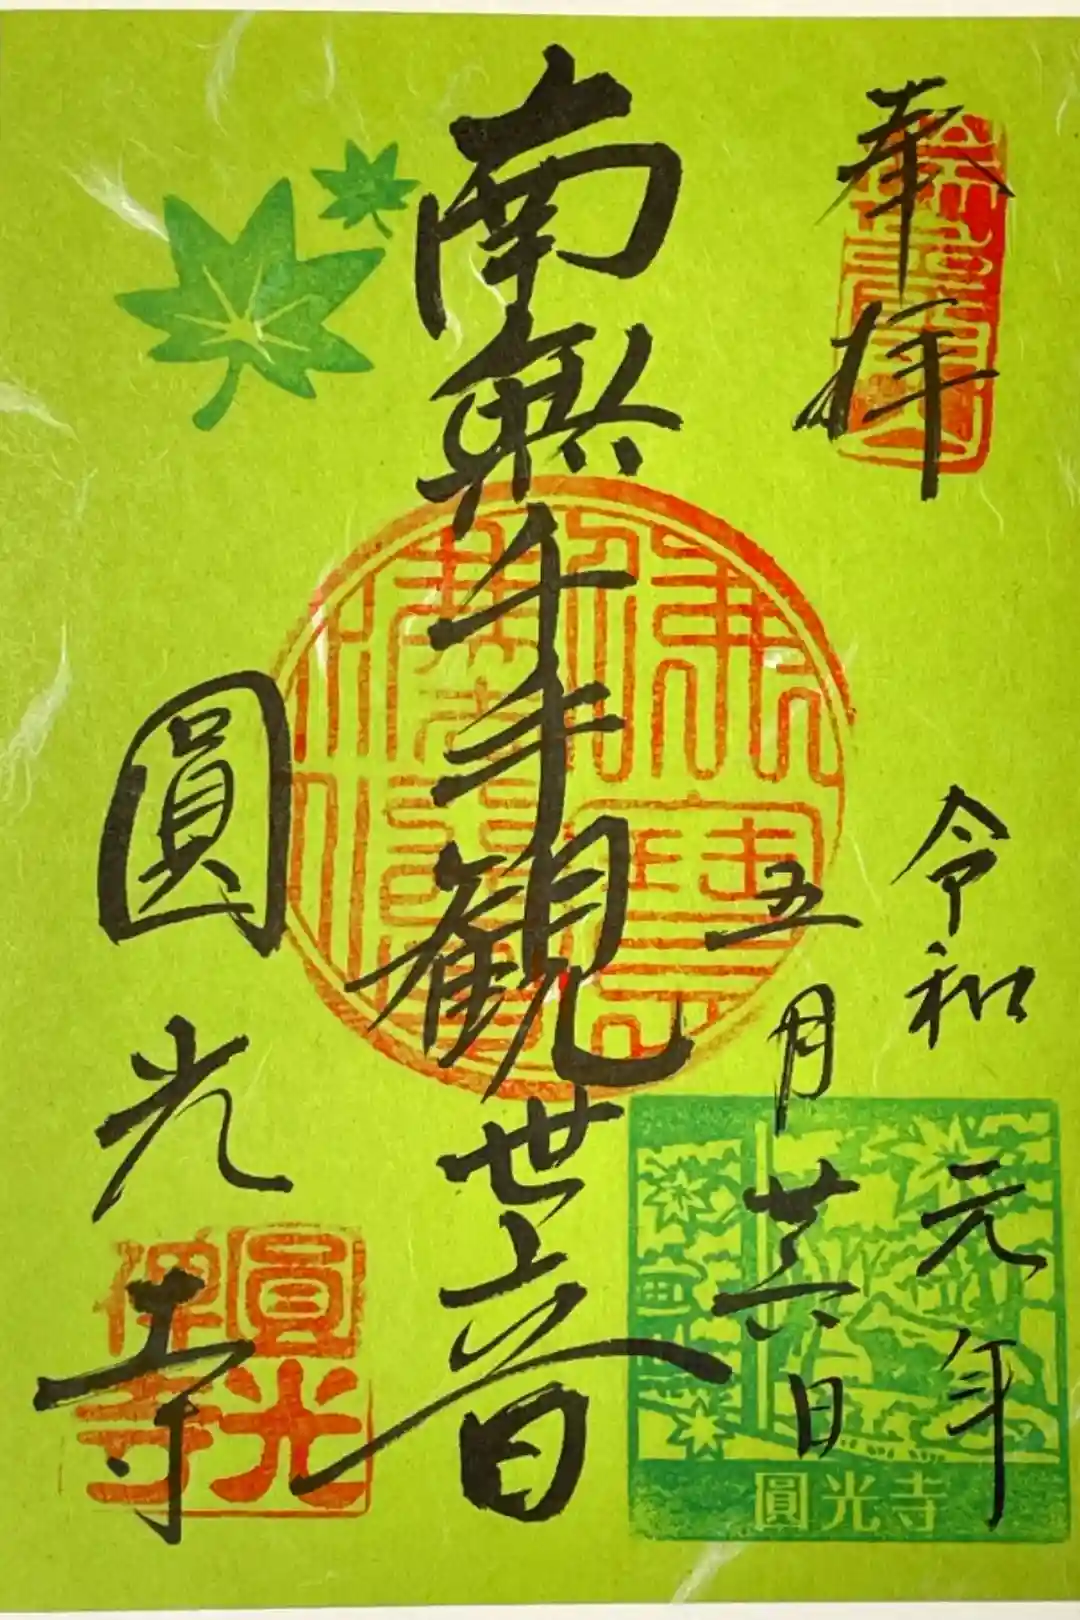 奉拝
令和元年
五月廿六日
南無千手観世音
圓光寺
圓光
禅寺
圓光寺